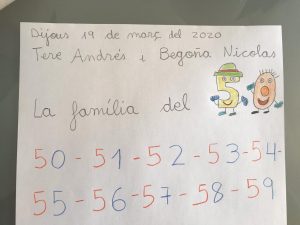 Dijous 19 de març del 2020
Tere Andrés i Begoña Nicolas
La família del 50
50 - 51 - 52 - 53 - 54 -
55 - 56 - 57 - 58 - 59